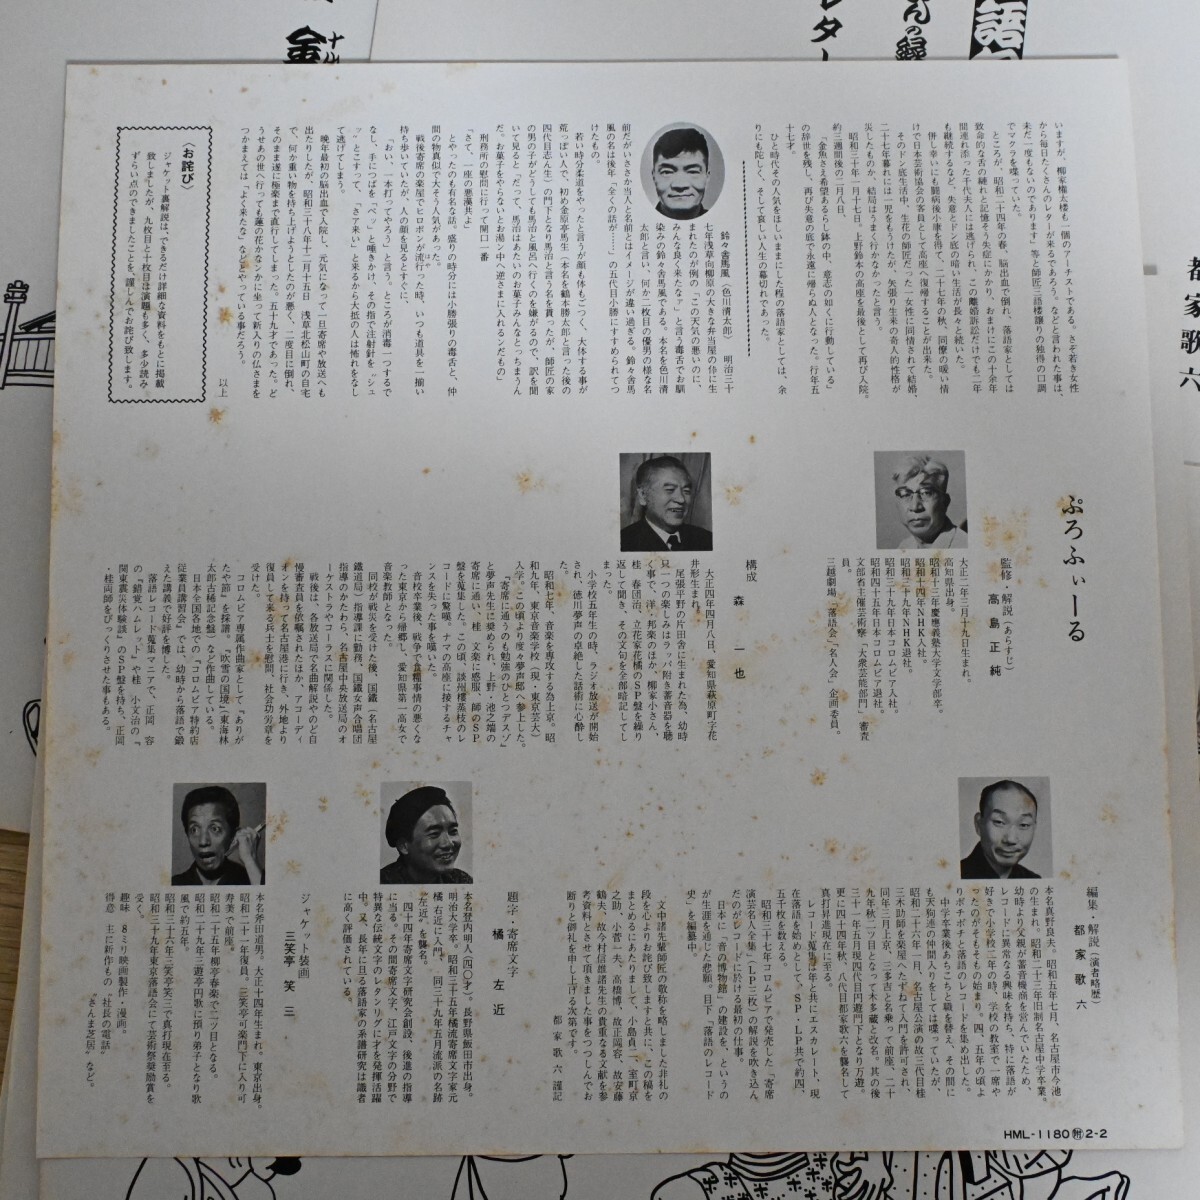 いますが、柳家権太楼も一個のアーチストである。さぞ若き女性
から毎日たくさんのレターが来るであろう。などと言われた事は、
未だ一度もないのであります」等と師匠三語楼譲りの独得の口調
でマクラを喋っていた。
ところが、昭和二十四年の春、脳出血で倒れ、落語家としては
致命的な舌の縺れと記憶そう失症にかかり、おまけにこの十余年
間連れ添った千代夫人には逃げられ、この離婚訴訟だけでも二年
も継続するなど、失意とドン底の暗い生活が長々と続いた。
併し幸いにも闘病後小康を得て、二十七年の秋、同僚の暖い情
けで日本芸術協会の客員として高座へ復帰することが出来た。
そのドン底生活中、生花の師匠だった一女性に同情されて結婚、
二十七年暮れには一児をもうけたが、矢張り生来の奇人的性格が
災したものか、結局はうまく行かなかったと言う。
昭和三十年一月十七日、上野鈴本の高座を最後として再び入院。
約三週間後の二月八日、
「金魚さえ希望あるらし鉢の中、意志の如くに行動している」
の辞世を残し、再び失意の底で永遠に帰らぬ人となった。行年五
十七才。
ひと時代その人気をほしいままにした程の落語家としては、余
りにも陀しく、そして哀しい人生の幕切れであった。
鈴々舎馬風(色川清太郎) 明治三十
七年浅草向柳原の大きな弁当屋の倅に生
まれたのが例の、「この天気の悪いのに、
みんな良く来たな?」と言う毒舌でお馴
染みの鈴々舎馬風である。本名を色川清
太郎と言い、何か二枚目の優男の様な名
前だがいささか当人と名前とはイメージが違い過ぎる。鈴々舎馬
風の名は後年、「全くの話が……」の五代目小勝にすすめられてつ
けたもの。
若い時分柔道をやったと言うが顔も体もごつく、大体する事が
荒っぽい人で、初め金原亭馬生(本名を鶴本勝太郎と言った後の
四代目志ん生)の門下となり馬治と言う名を貰ったが、師匠の家
の男の子がどうしても馬治と風呂へ行くのを嫌がるので、訳を聞
いて見ると「だって、馬治はあたいのお菓子みんなとっちまうん
だ。お菓子をやらないとお湯ン中へ逆さまに入れるンだもの」
刑務所の慰問に行って開口一番
「さて、一座の悪漢共よ」
とやったのも有名な話。盛りの時分には小勝張りの毒舌と、仲
間の物真似で大そう人気があった。
戦後寄席の楽屋でヒロポンが流行った時、いつも道具を一揃い
持ち歩いていたが、人の顔を見るとすぐに、
「おい、一本打ってやろう」と言う。ところが消毒一つするで
なし、手につばを「ペッ」と唾きかけ、その指で注射針を"シュ
ッ"とこすって、「さァ来い」と来るから大抵の人は怖れをなし
て逃げてしまう。
晩年最初の脳出血で入院し、元気になって一旦寄席や放送へも
出たりしたが、昭和三十八年十二月十五日 浅草北松山町の自宅
で、何か重い物を持ち上げようとしたのが悪くて、二度目に倒れ、
そのまま遂に極楽まで直行してしまった。五十九才であった。ど
うせあの世へ行っても蓮の花かなンかに坐って新入りの仏さまを
つかまえては「よく来たな」などとやっている事だろう。
以上
〈お詫び〉
ジャケット裏解説は、できるだけ詳細な資料をもとに掲載
致しましたが、九枚目と十枚目は演題も多く、多少読み
ずらい点のできましたことを、謹しんでお詫び致します。
ぷろふぃーる
監修・解説(あらすじ)
高島正純
大正二年三月十九日生まれ。
高知県出身。
昭和十三年慶應義塾大学文学部卒。
昭和十四年NHK入社。
昭和二十九年NHK退社。
昭和二十九年日本コロムビア入社。
昭和四十五年日本コロムビア退社。
文部省主催芸術祭「大衆芸能部門」審査
員。
三越劇場「落語会」「名人会」企画委員。
構成 森一也
大正四年四月八日、愛知県萩原町字花
井形生まれ。
尾張平野の片田舎に生まれた為、幼時
只一つの楽しみはラッパ附き蓄音器を聴
く事で、洋・邦楽のほか、柳家小さん、
桂 春団治、立花家花橘のSP盤を繰り
返して聞き、その文句を全部暗記してし
まった。
小学校五年生の時、ラジオ放送が開始
され、徳川夢声の卓絶した話術に心酔し
た。
昭和七年、音楽を専攻する為上京。昭
和九年、東京音楽学校(現・東京芸大)
入学。この頃より度々夢声邸へ参上した。
「寄席に通うのも勉強のひとつデスゾ」
と夢声先生に奨められ、上野・池之端の
寄席に通い、桂 文楽に感服、師のSP
盤を蒐集した。この頃、談州楼燕枝のレ
コードに驚嘆、ナマの高座に接するチャ
ンスを失った事を嘆いた。
音校卒業後、戦争で食糧事情の悪くな
った東京から帰郷し、愛知県第一高女で
音楽教師となった。
同校が戦災を受けた後、国鉄(名古屋
鐵道局)指導課に勤務、国鐵女声合唱団
指導のかたわら、名古屋中央放送局のオ
ーケストラやコーラスに関係した。
戦後は、各放送局で名曲解説やのど自
慢審査員を依嘱されたほか、アコーディ
オンを持って名古屋港に行き、外地より
復員して来る兵士を慰問、社会功労章を
受けた。
コロムビア専属作曲家として「ありが
たや節」を採譜。「吹雪の国境」(東海林
太郎古稀記念盤)など作曲している。
日本全国各地での「コロムビア特約店
従業員講習会」では、幼時から落語で鍛
えた講義で好評を博した。
落語レコード蒐集マニアで、正岡 容
の「錯覚ハムレット」や桂 小文治の「
関東震災体験談」のSP盤を持ち、正岡
・桂両師をびっくりさせた事もある。
編集・解説(演者略歴)
都家歌六
本名真野良夫。昭和五年七月、名古屋市今池
の生まれ。昭和二十三年旧制名古屋中学卒業。
幼時より父親が蓄音機商を営んでいたため、
レコードに異常なる興味を持ち、特に落語が
好きで小学校二年の時、学校の教室で一席や
ったのがそもそもの始まり。四、五年の頃よ
りボチボチと落語のレコードを集め出した。
中学卒業後あちこちと職を替え、その間に
も天狗連の仲間入りをしては喋っていたが、
昭和二十六年一月、名古屋公演の故三代目桂
三木助師を楽屋へたずねて入門を許可され、
同年三月上京、三多吉と名乗って前座、二十
九年秋二ツ目となって木多蔵と改名。其の後
三十一年五月現四代目円遊門下となり万遊。
更に四十四年秋、八代目都家歌六を襲名して
真打昇進現在に至る。
レコード蒐集は年と共にエスカレート、現
在落語を始めとして。SP・LP共で約四、
五千枚を数える。
昭和三十七年コロムビアで発売した「寄席
演芸名人全集」(LP三枚)の解説を吹き込ん
だのがレコードに於ける最初の仕事。
日本に「音の博物館」の建設を、というの
が生涯を通じた悲願。目下「落語のレコード
史」を編纂中。
文中諸先輩師匠の敬称を略しました非礼の
段を心よりお詫び致しますと共に、この稿を
まとめるにあたりまして、小島貞二、室町京
之助、小菅一夫、高橋博、故正岡容、故安藤
鶴夫、故今村信雄諸先生の貴重なる文献を参
考資料とさせて頂きました事をつつしんでお
断りと御礼を申し上げる次第です。
都家歌六謹記
題字・寄席文字
橘左近
本名登内明人(四〇才)。長野県飯田市出身。
明治大学卒。昭和三十五年橘流寄席文字家元
橘 右近に入門、同三十九年五月流派の名跡
"左近"を襲名。
四十四年寄席文字研究会創設、後進の指導
に当る。その間寄席文字、江戸文字の分野で
特異な伝統文字のレタリングに才を発揮活躍
中。又、長年に亘る落語家の系譜研究は識者
に高く評価されている。
ジャケット装画
三笑亭笑三
本名斧田道男。大正十四年生まれ。東京出身。
昭和二十一年復員。三笑亭可楽門下に入り可
寿美で前座。
昭和二十五年柳亭春楽で二ツ目となる。
昭和二十九年三遊亭円歌に預り弟子となり歌
風で約五年。
昭和三十六年三笑亭笑三で真打現在に至る。
昭和三十九年東京落語会にて芸術祭奨励賞を
受く。
趣味 8ミリ映画製作・漫画。
得意 主に新作もの「社長の電話」
「さんま芝居」など。
HML-1180㊥2-2
都家歌六